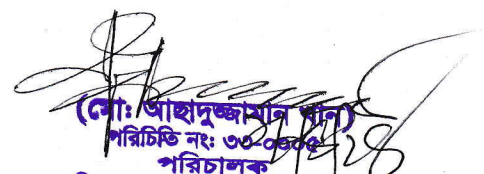 (মো: আছাদুজ্জামান খান)
পরিচিতি নং: ৩৩-০৬০৫
পরিচালক